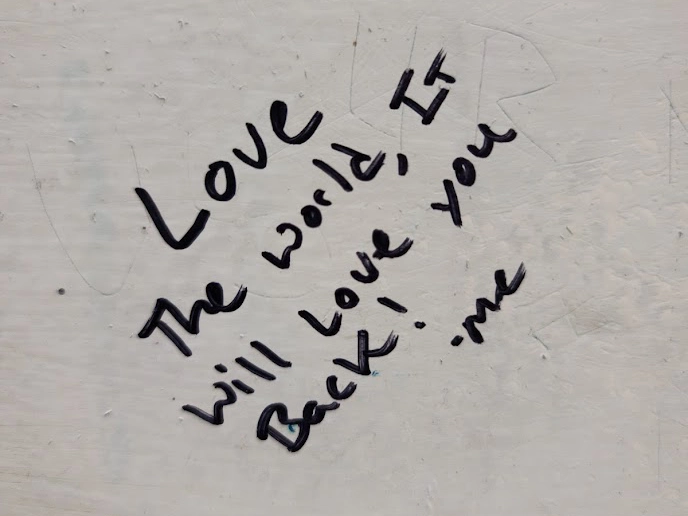 Love
The world, It
will Love you
Back!
.me